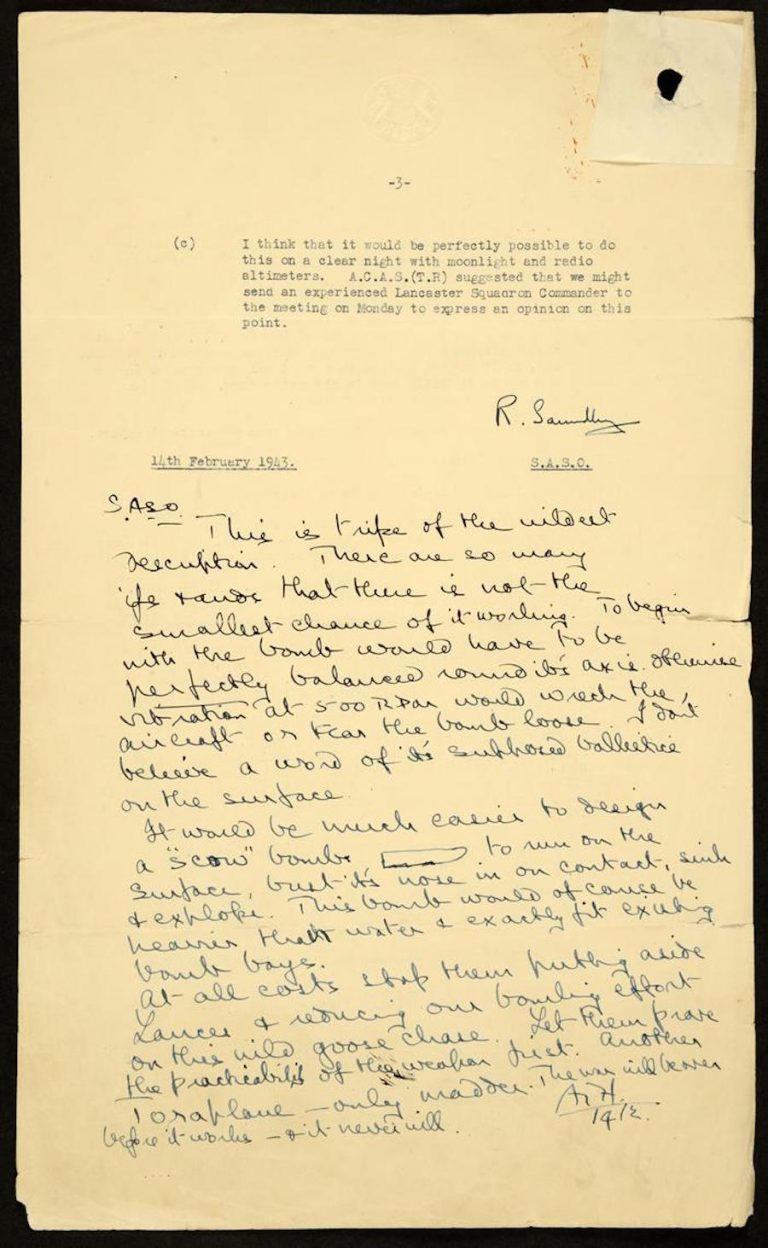 -3-
(c) I think that it would be perfectly possible to do
this on a clear night with moonlight and radio
altimeters. A.C.A.S.(T.R) suggested that we might
send an experienced Lancaster Squadron Commander to
the meeting on Monday to express an opinion on this
point.
R. Saundby
14th February 1943. S.A.S.O.
S.A.S.O.
This is tripe of the wildest
description. There are so many
ifs & ands that there is not the
smallest chance of it working. To begin
with the bomb would have to be
perfectly balanced round its axis otherwise
vibration at 500 RPM would wreck the
aircraft or tear the bomb loose. I don't
believe a word of its supposed ballistics
on the surface.
It would be much easier to design
a "scow" bomb, to run on the
surface, bust its nose in on contact, sink
& explode. This bomb would of course be
heavier than water & exactly fit existing
bomb bays.
At all costs stop them putting aside
Lancs & reducing our bombing effort
on this wild goose chase. Let them prove
the practicability of the weapon first. Another
Toraplane – only madder. The war will be over
before it works – & it never will.
A.T.H.
14/2.